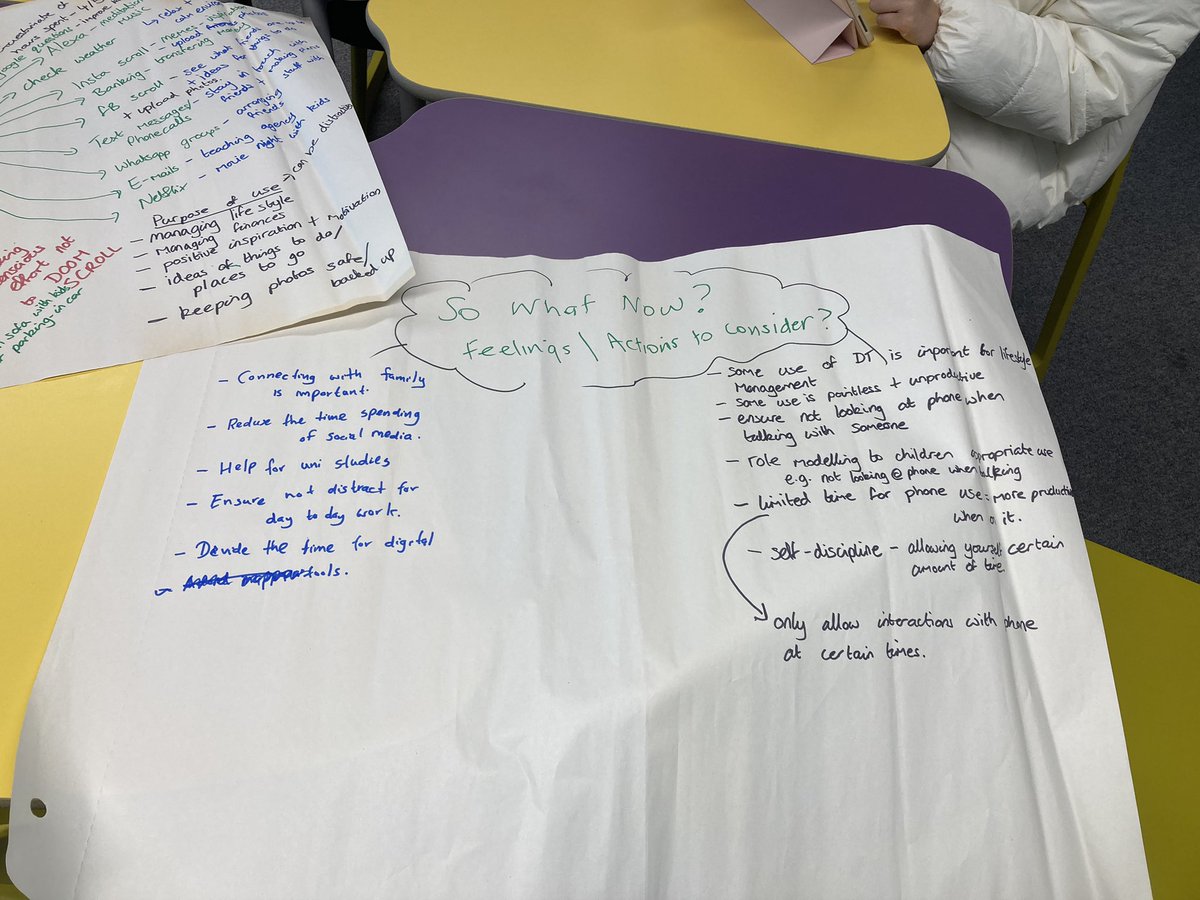 hours spent - 4/5
google questions - improve
Alexa - meditation
music
check weather
Insta scroll - memes
Banking - transferring money
FB scroll - see what friends are
+ upload photos.
+ ideas for things to do
Text Messages/ - stay in touch with
Phonecalls
friends + making plans
Whatsapp groups - arranging stuff with
friends
E-mails - teaching agency
Netflix - movie night with kids
Purpose of use → can be distraction
- managing lifestyle
- Managing finances
- positive inspiration + motivation
- ideas of things to do/
places to go
- keeping photos safe/
backed up
effort not
to DOOM
SCROLL
sofa with kids
parking - in car
So What Now?
Feelings \ Actions to consider?
- Connecting with family
is important.
- Reduse the time spending
of social media.
- Help for uni studies
- Ensure not distract for
day to day work.
- Devide the time for digital
tools.
- some use of DT is important for lifestyle
Management
- some use is pointless + unproductive
- ensure not looking at phone when
talking with someone
- role modelling to children appropriate use
e.g. not looking @ phone when talking
- limited time for phone use = more productive
when on it.
- self-discipline - allowing yourself certain
amount of time.
only allow interactions with phone
at certain times.